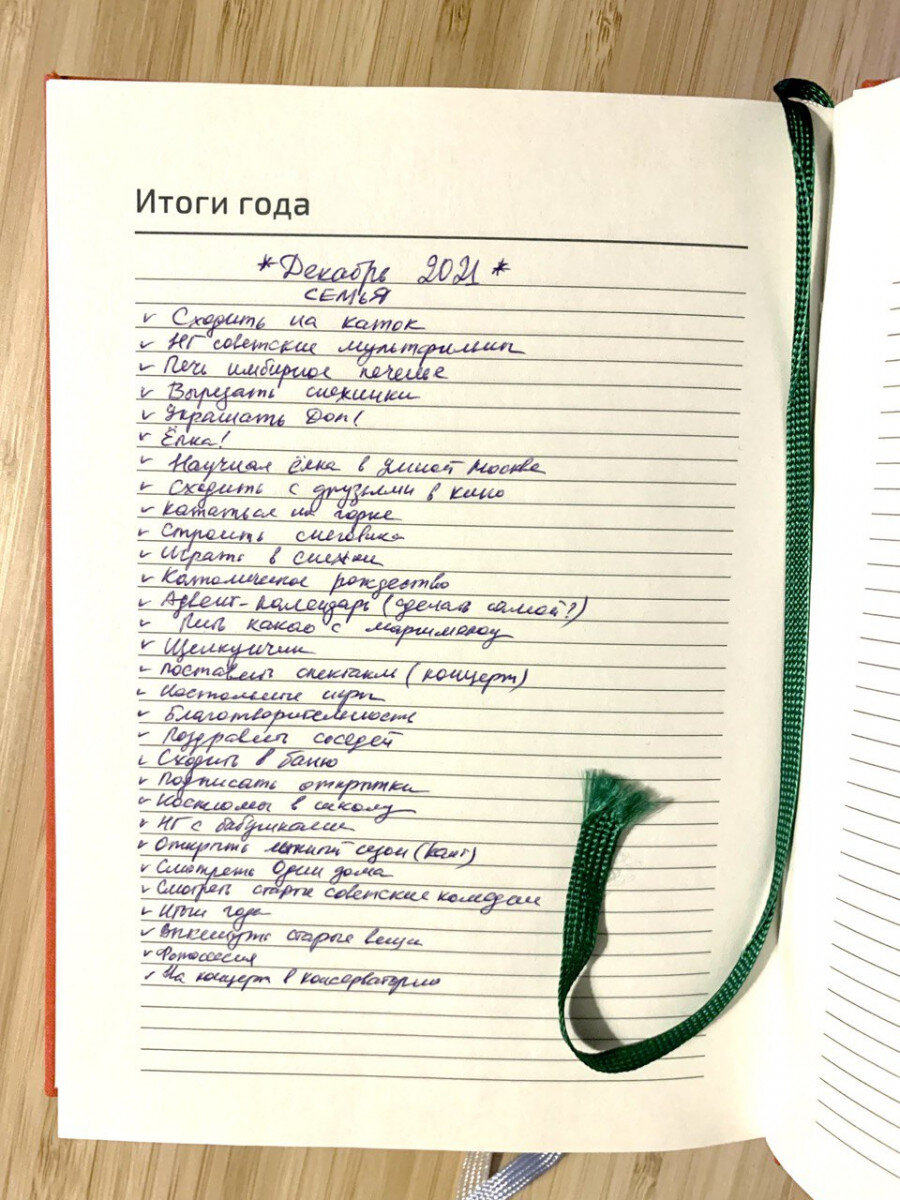 Итоги года
*Декабрь 2021*
СЕМЬЯ
✓ Сходить на каток
✓ НГ советские мультфильмы
✓ Печь имбирное печенье
✓ Вырезать снежинки
✓ Украшать Дом!
✓ Ёлка!
✓ Научная ёлка в Умной Москве
✓ Сходить с друзьями в кино
✓ Кататься на горке
✓ Строить снеговика
✓ Играть в снежки
✓ Католическое рождество
✓ Адвент-календарь (сделать самой?)
✓ Пить какао с маршмелоу
✓ Щелкунчик
✓ Поставить спектакль (концерт)
✓ Настольные игры
✓ Благотворительность
✓ Поздравить соседей
✓ Сходить в баню
✓ Подписать открытки
✓ Костюмы в школу
✓ НГ с бабушками
✓ Открыть лыжный сезон (кант)
✓ Смотреть Один дома
✓ Смотреть старые советские комедии
✓ Итоги года
✓ Выкинуть старые вещи
✓ Фотосессия
✓ На концерт в консерваторию